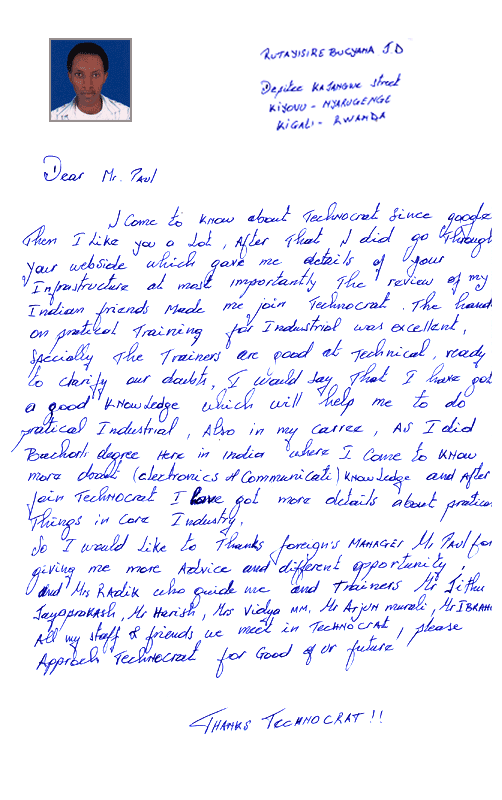 RUTAYISIRE BUGYAMA J.D
Depitee KAJANGWE Street
KIYOVU - NYARUGENGE
KIGALI - RWANDA
Dear Mr. PAUL
I Come to know about Technocrat Since google
Then I Like you a Lot, After That I did go Through
Your webside which gave me details of your
Infrastructure at most importantly The review of my
Indian friends Made me join Technocrat. The hand
on pratical Training for Industrial was excellent,
Specially The Trainers are good at Technical, ready
to clarify our doubts, I would say That I have got
a good KNOWLedge which will help me to do
pratical Industrial, Also in my carree, As I did
Bachorli degree Here in India where I Come to KNOW
more doubt (electronics & Communicati) KNOWLedge and After
join TECHNOCRAT I have got more details about pratical
Things in Core Industry.
So I would Like to Thanks foreign's MANAGER Mr PAUL for
giving me more Advice and different opportunity,
and Mrs RAdik who guide me and Trainers Mr Jithu
Jayaprakash, Mr Harish, Mrs Vidya MM, Mr Arjun murali, Mr IBRAHI
All my staff & friends we meet in TECHNOCRAT, please
Approch Technocrat for Good of ur future
THANKS TECHNOCRAT !!